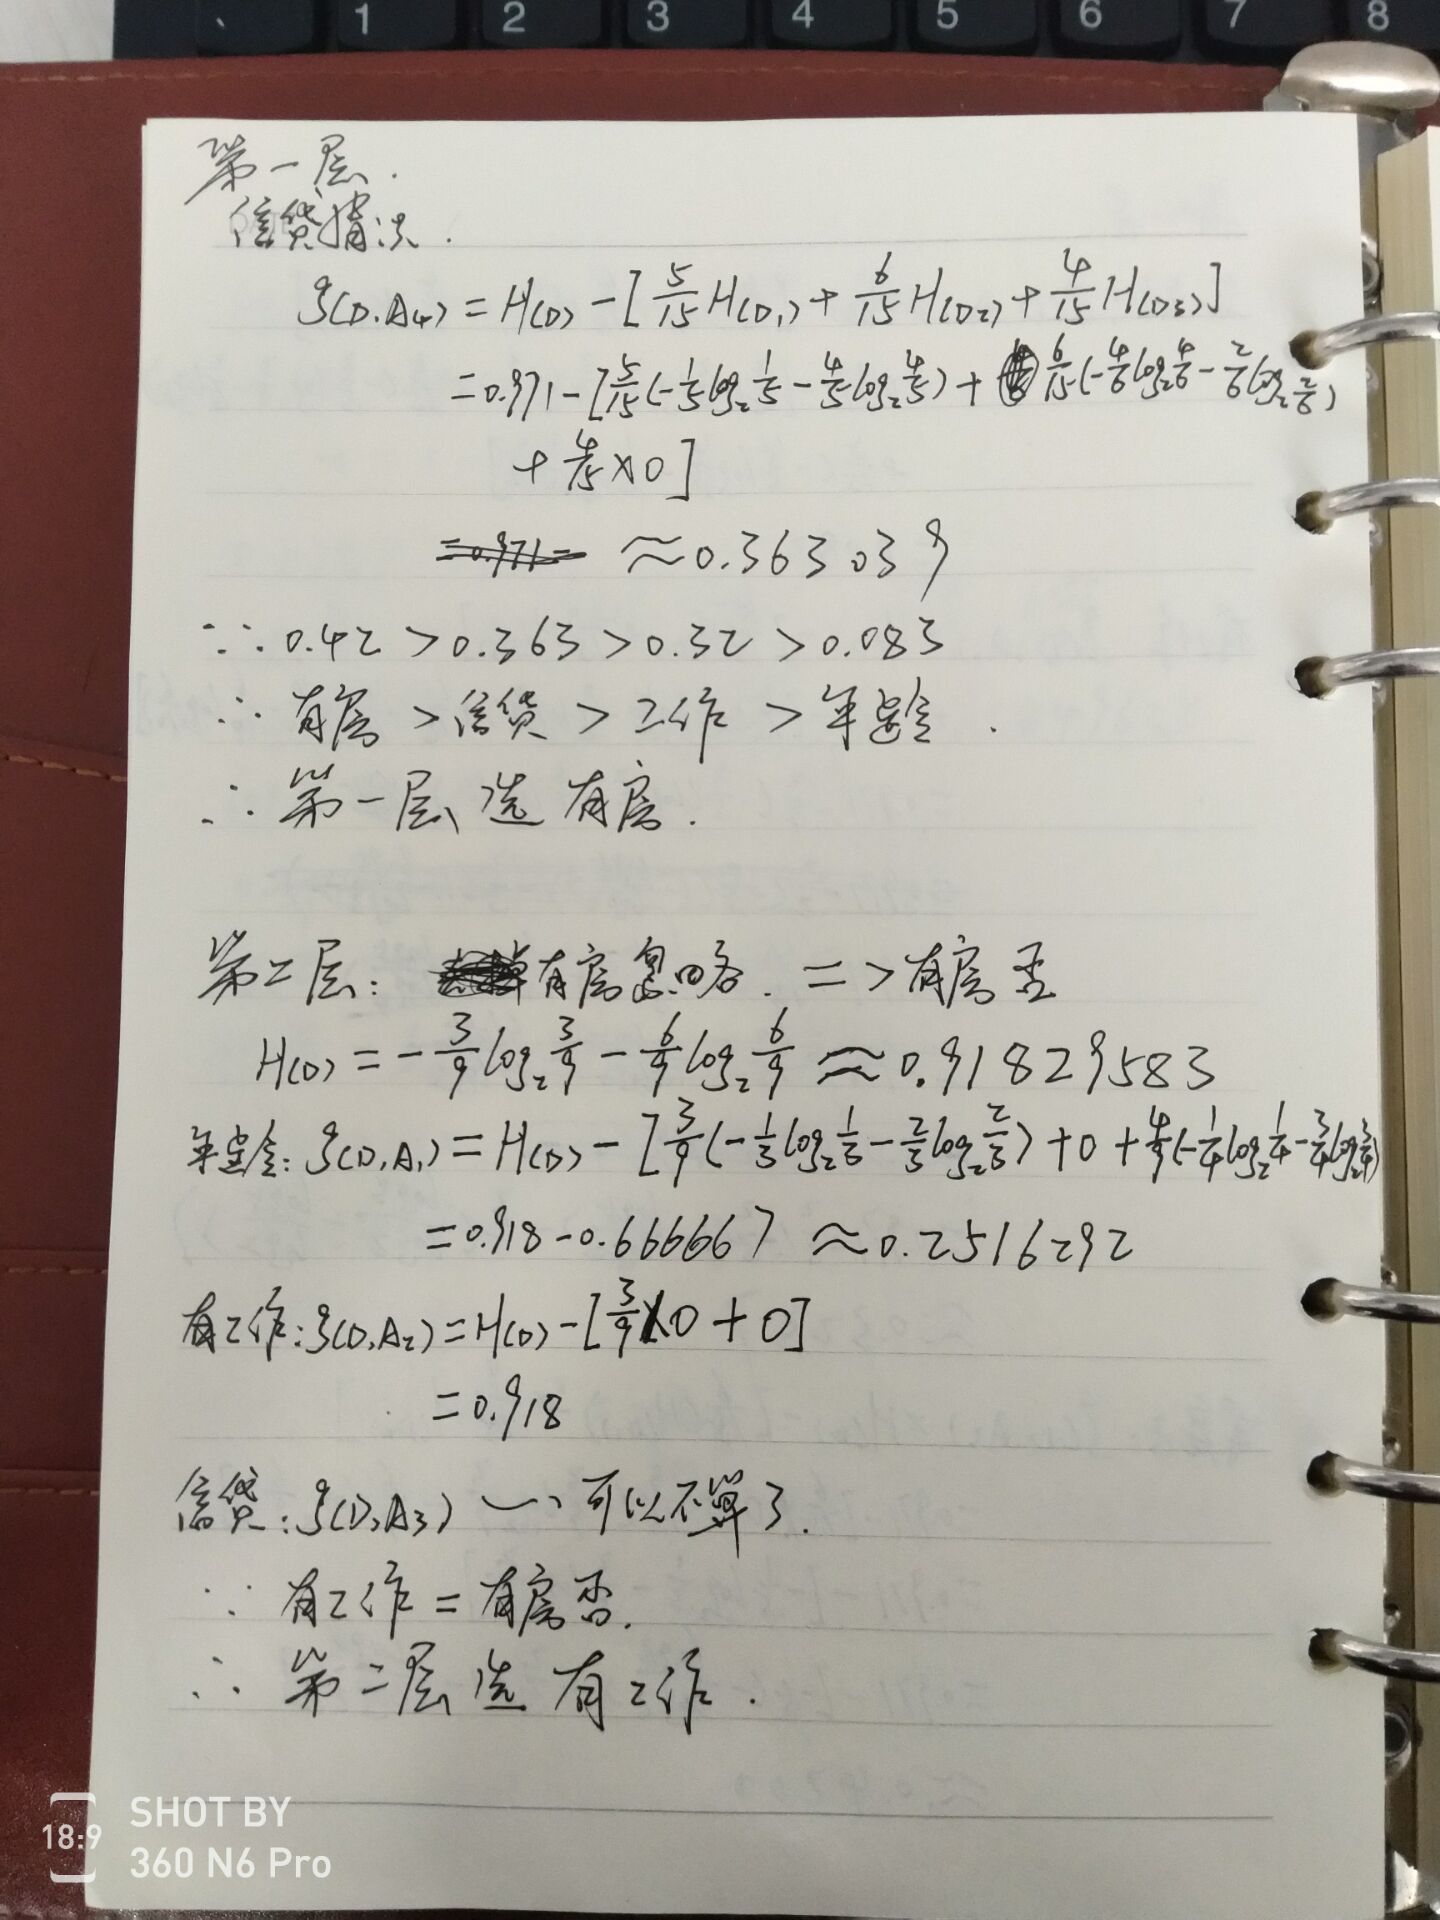 1 2 3 4 5 6 7 8
第一层.
信贷情况.
g(D,A₄) = H(D) - [5/15 H(D₁) + 6/15 H(D₂) + 4/15 H(D₃)]
= 0.971 - [5/15(-1/5 log₂ 1/5 - 4/5 log₂ 4/5) + 6/15(-4/6 log₂ 4/6 - 2/6 log₂ 2/6)
+ 4/15 × 0]
≈ 0.363039
∵ 0.42 > 0.363 > 0.32 > 0.083
∴ 有房 > 信贷 > 工作 > 年龄.
∴ 第一层选有房.
第二层: 有房忽略. => 有房否
H(D) = - 3/9 log₂ 3/9 - 6/9 log₂ 6/9 ≈ 0.91829583
年龄: g(D,A₁) = H(D) - [3/9(-1/3 log₂ 1/3 - 2/3 log₂ 2/3) + 0 + 4/9(-1/4 log₂ 1/4 - 3/4 log₂ 3/4)
= 0.918 - 0.666667 ≈ 0.2516292
有工作: g(D,A₂) = H(D) - [3/9 × 0 + 0]
= 0.918
信贷: g(D,A₃) 可以不算了.
∵ 有工作 = 有房否.
∴ 第二层选有工作.
18:9
SHOT BY
360 N6 Pro